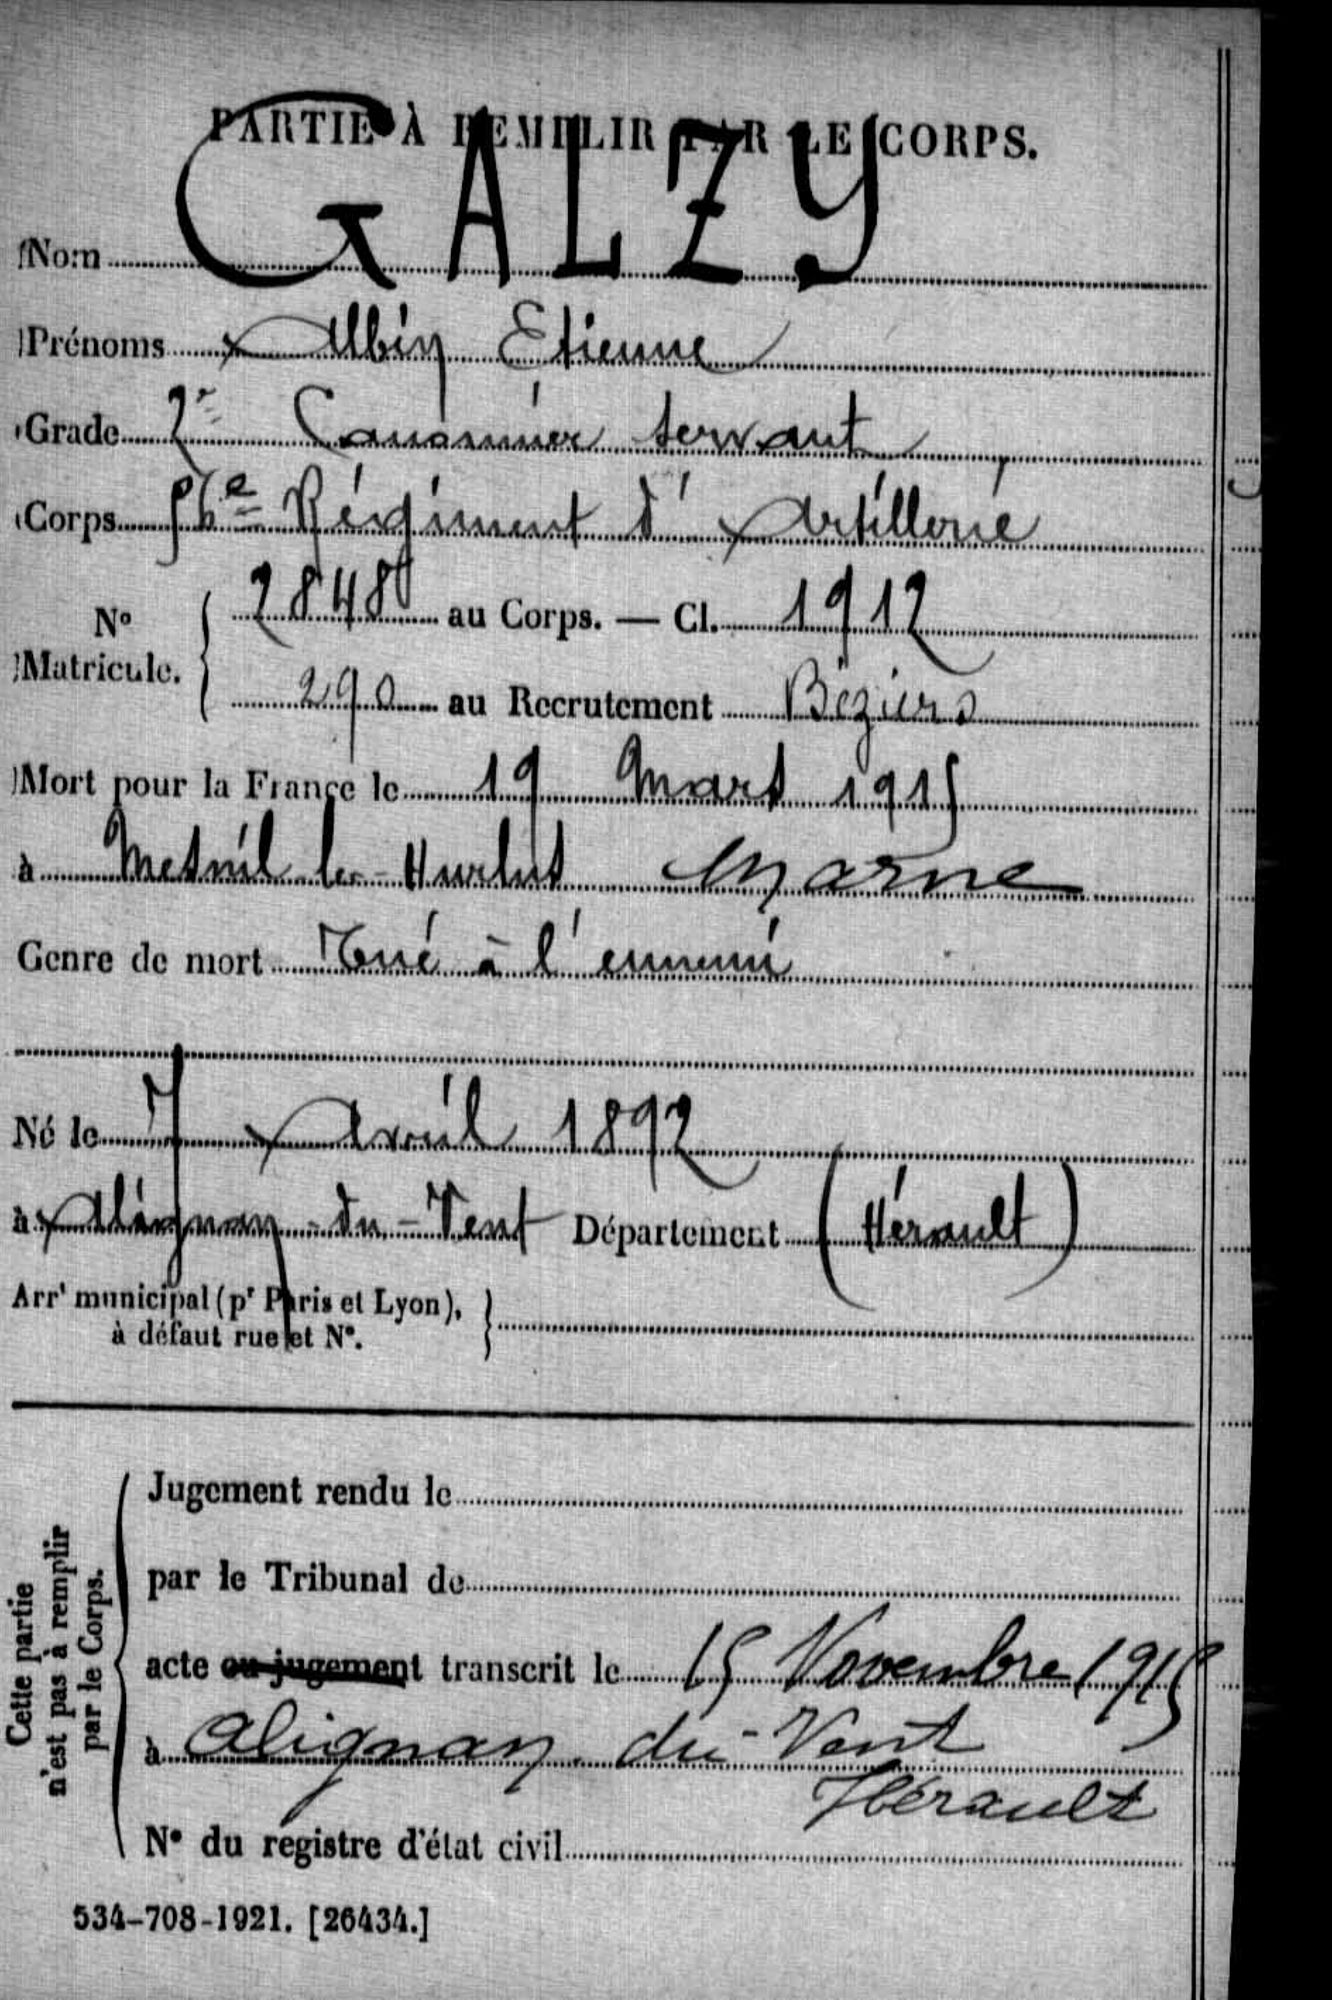 PARTIE À REMPLIR PAR LE CORPS.
Nom GALZY
Prénoms Albin Etienne
Grade 2e Canonnier servant
Corps 56e Régiment d'Artillerie
No Matricule. 2848 au Corps. — Cl. 1912
290 au Recrutement Béziers
Mort pour la France le 19 Mars 1915
à Mesnil les Hurlus Marne
Genre de mort Tué à l'ennemi
Né le 7 Avril 1892
à Alignan-du-Vent Département (Hérault)
Arrt municipal (pr Paris et Lyon),
à défaut rue et No.
Cette partie
n'est pas à remplir
par le Corps.
Jugement rendu le
par le Tribunal de
acte ou jugement transcrit le 15 Novembre 1915
à Alignan du Vent
Hérault
No du registre d'état civil
534-708-1921. [26434.]